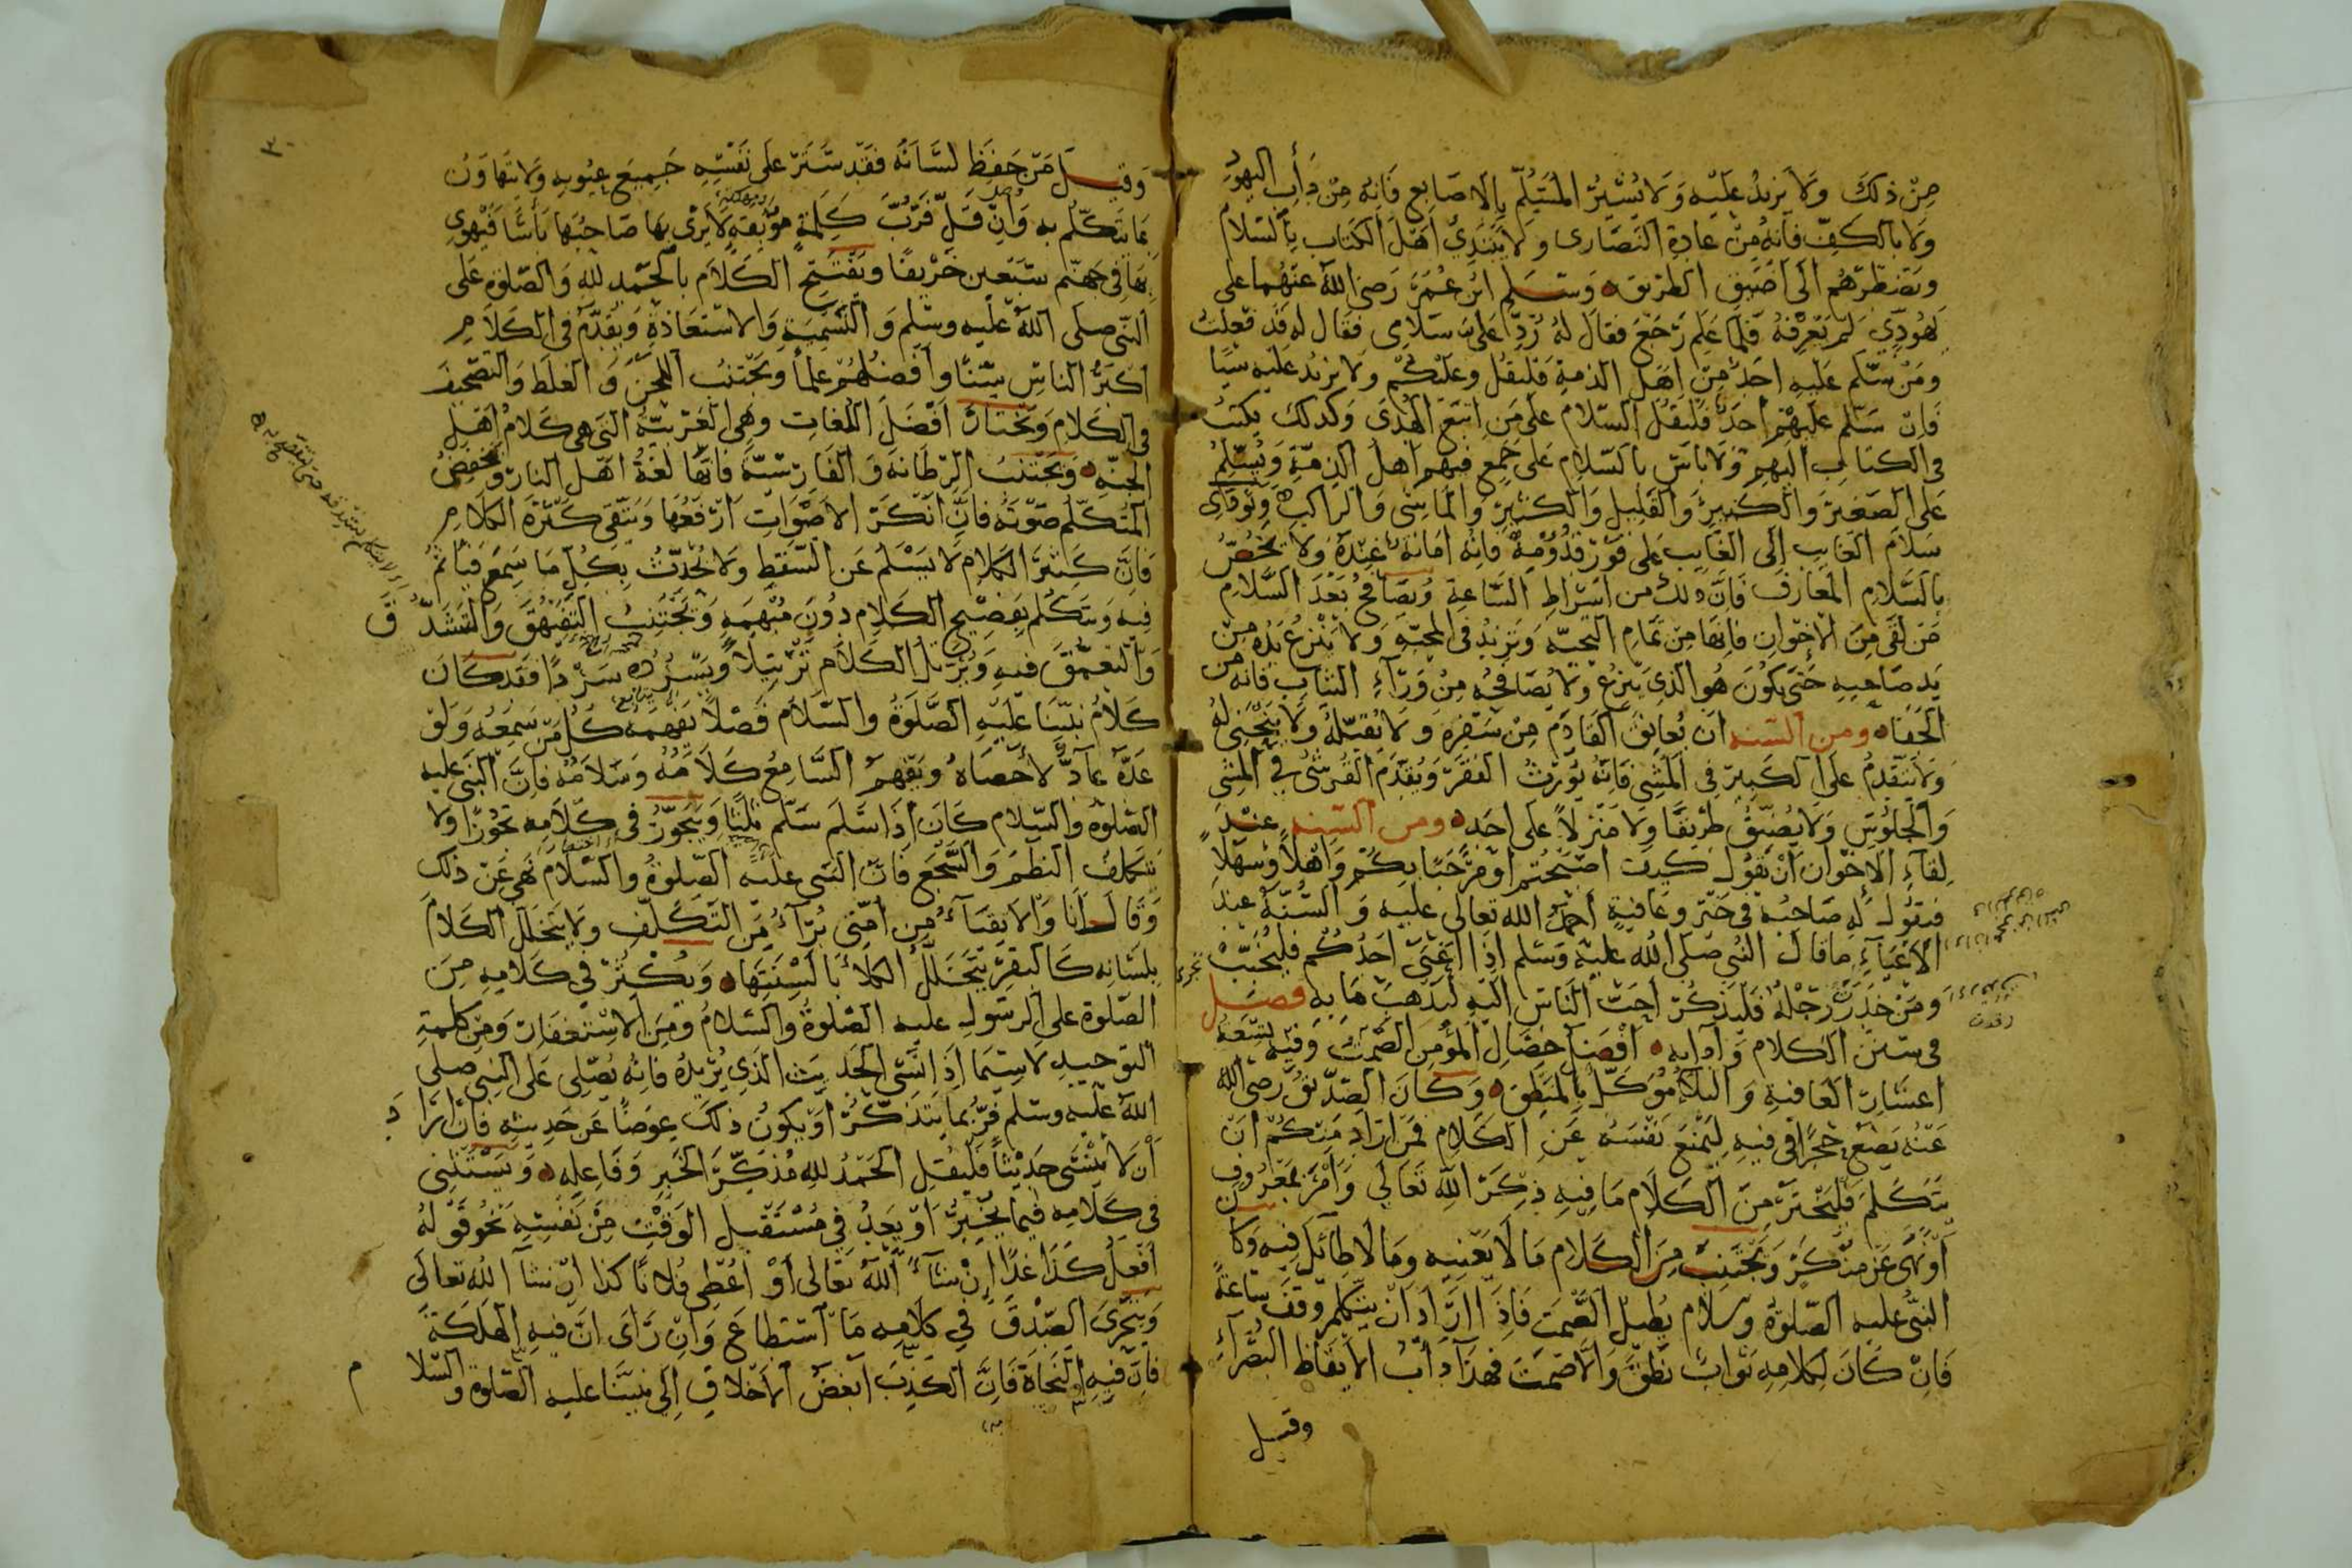 من ذلك ولا يزيد عليه ولا يشير المسلّم بالاصابع فانه من دأب اليهود
ولا بالكف فانه من عادة النصارى ولا يبتدئ اهل الكتاب بالسلام
ويضطرهم الى اضيق الطريق وسلم ابن عمر رضى الله عنهما على
يهودي لم يعرفه فلما علم رجع فقال له ردّ علىّ سلامى فقال له قد فعلت
ومن سلم عليه احد من اهل الذمة فليقل وعليكم ولا يزيد عليه شيا
فان سلم عليهم احد فليقل السلام على من اتبع الهدى وكذلك يكتب
فى الكتاب اليهم ولا باس بالسلام على جمع فيهم اهل الذمّة ويسلم
على الصغير والكبير والقليل والكثير والماشى والراكب ويؤدى
سلام الغايب الى الغايب على فور قدومه فانه امانة عنده ولا يخص
بالسلام المعارف فان ذلك من اشراط الساعة ويصافح بعد السلام
من لقى من الاخوان فانها من تمام التحيّة وتزيد فى المحبّة ولا ينزع يده من
يد صاحبه حتى يكون هو الذى ينزع ولا يصافحه من ورآء الثياب فانه من
الجفاء ومن السنه ان يعانق القادم من سفره ولا يقبّله ولا ينحنى له
ولا يتقدم على الكبير فى المشى فانّه يورث الفقر ويقدّم القرشى فى المشى
والجلوس ولا يضيّق طريقا ولا منزلا على احد ومن السنه عند
لقاء الاخوان ان يقول كيف اصبحتم او مرحبا بكم واهلا وسهلا
فيقول له صاحبه فى خير وعافية احمد الله تعالى عليه والسّنّة عند
الاعياء ما قال النبي صلى الله عليه وسلم اذا اعيى احدكم فليخبّ
ومن خدرت رجله فليذكر احبّ الناس اليه ليذهب ما به فصل
فى سنن الكلام وآدابه افضل خصال المؤمن الصمت وفيه تسعة
اعشار العافية والبلآء موكّل بالمنطق وكان الصدّيق رضى الله
عنه يضع حجرا فى فيه ليمنع نفسه عن الكلام فمن اراد منكم ان
يتكلم فليختر من الكلام ما فيه ذكر الله تعالى وامر بمعروف
او نهى عن منكر ويجتنب من الكلام ما لا يعنيه وما لا طآئل فيه وكان
النبى عليه الصلوة وسلام يطيل الصمت فاذا اراد ان يتكلم وقف ساعة
فان كان لكلامه ثواب نطق والا صمت فهذا دأب الايقاظ البصرآء
وقيل
وقيل من حفظ لسانه فقد ستر على نفسه جميع عيوبه ولا يتهاون
بما يتكلم به وان قلّ فربّ كلمة موبقة لا يرى بها صاحبها بأسا فيهوى
بها فى جهنم سبعين خريفا ويفتتح الكلام بالحمد لله والصلوة على
النبى صلى الله عليه وسلم والتسمية والاستعاذة ويقدّم فى الكلام
اكبر الناس سنّا وافضلهم علما ويجتنب اللحن والغلط والتصحيف
فى الكلام ويختار افضل اللغات وهى العربيّة التى هى كلام اهل
الجنّة ويجتنب الرطانة والفارسيّة فانها لغة اهل النار ويخفض
المتكلم صوته فان انكر الاصوات ارفعها ويتقى كثرة الكلام
فان كثير الكلام لا يسلم عن السقط ولا يحدّث بكل ما سمع فيأثم
فيه ويتكلم بفصيح الكلام دون مبهمه ويجتنب التفيهق والتشدّق
والتعمّق فيه ويرتّل الكلام ترتيلا ويسرده سردا فقد كان
كلام نبيّنا عليه الصلوة والسلام فصلا يفهمه كل من سمعه ولو
عدّه عآدّ لأحصاه ويفهم السامع كلامه وسلامه فان النبى عليه
الصلوة والسلام كان اذا سلم سلم ثلثا ويتجوّز فى كلامه تجوّزا ولا
يتكلف النظم والسجع فان النبى عليه الصلوة والسلام نهى عن ذلك
وقال انا والاتقيآء من امّتى برآء من التكلّف ولا يتخلل الكلام
بلسانه كالبقر يتخلّل الكلأ بالسنتها ويكثر فى كلامه من
الصلوة على الرسول عليه الصلوة والسلام ومن الاستغفار ومن كلمة
التوحيد لا سيّما اذا نسى الحديث الذى يريده فانه يصلى على النبى صلى
الله عليه وسلم فربّما يتذكّر او يكون ذلك عوضا عن حديثه فان اراد
ان لا ينسى حديثا فليقل الحمد لله مذكّر الخير وفاعله ويستثنى
فى كلامه فيما يخبر او يعد فى مستقبل الوقت من نفسه نحو قوله
افعل كذا غدا ان شآء الله تعالى أو اعطى فلانا كذا ان شآ الله تعالى
ويتحرى الصّدق فى كلامه ما استطاع وان رأى ان فيه الهلكة
فان فيه النجاة فانّ الكذب ابغض الاخلاق الى نبيّنا عليه الصلوة والسلام